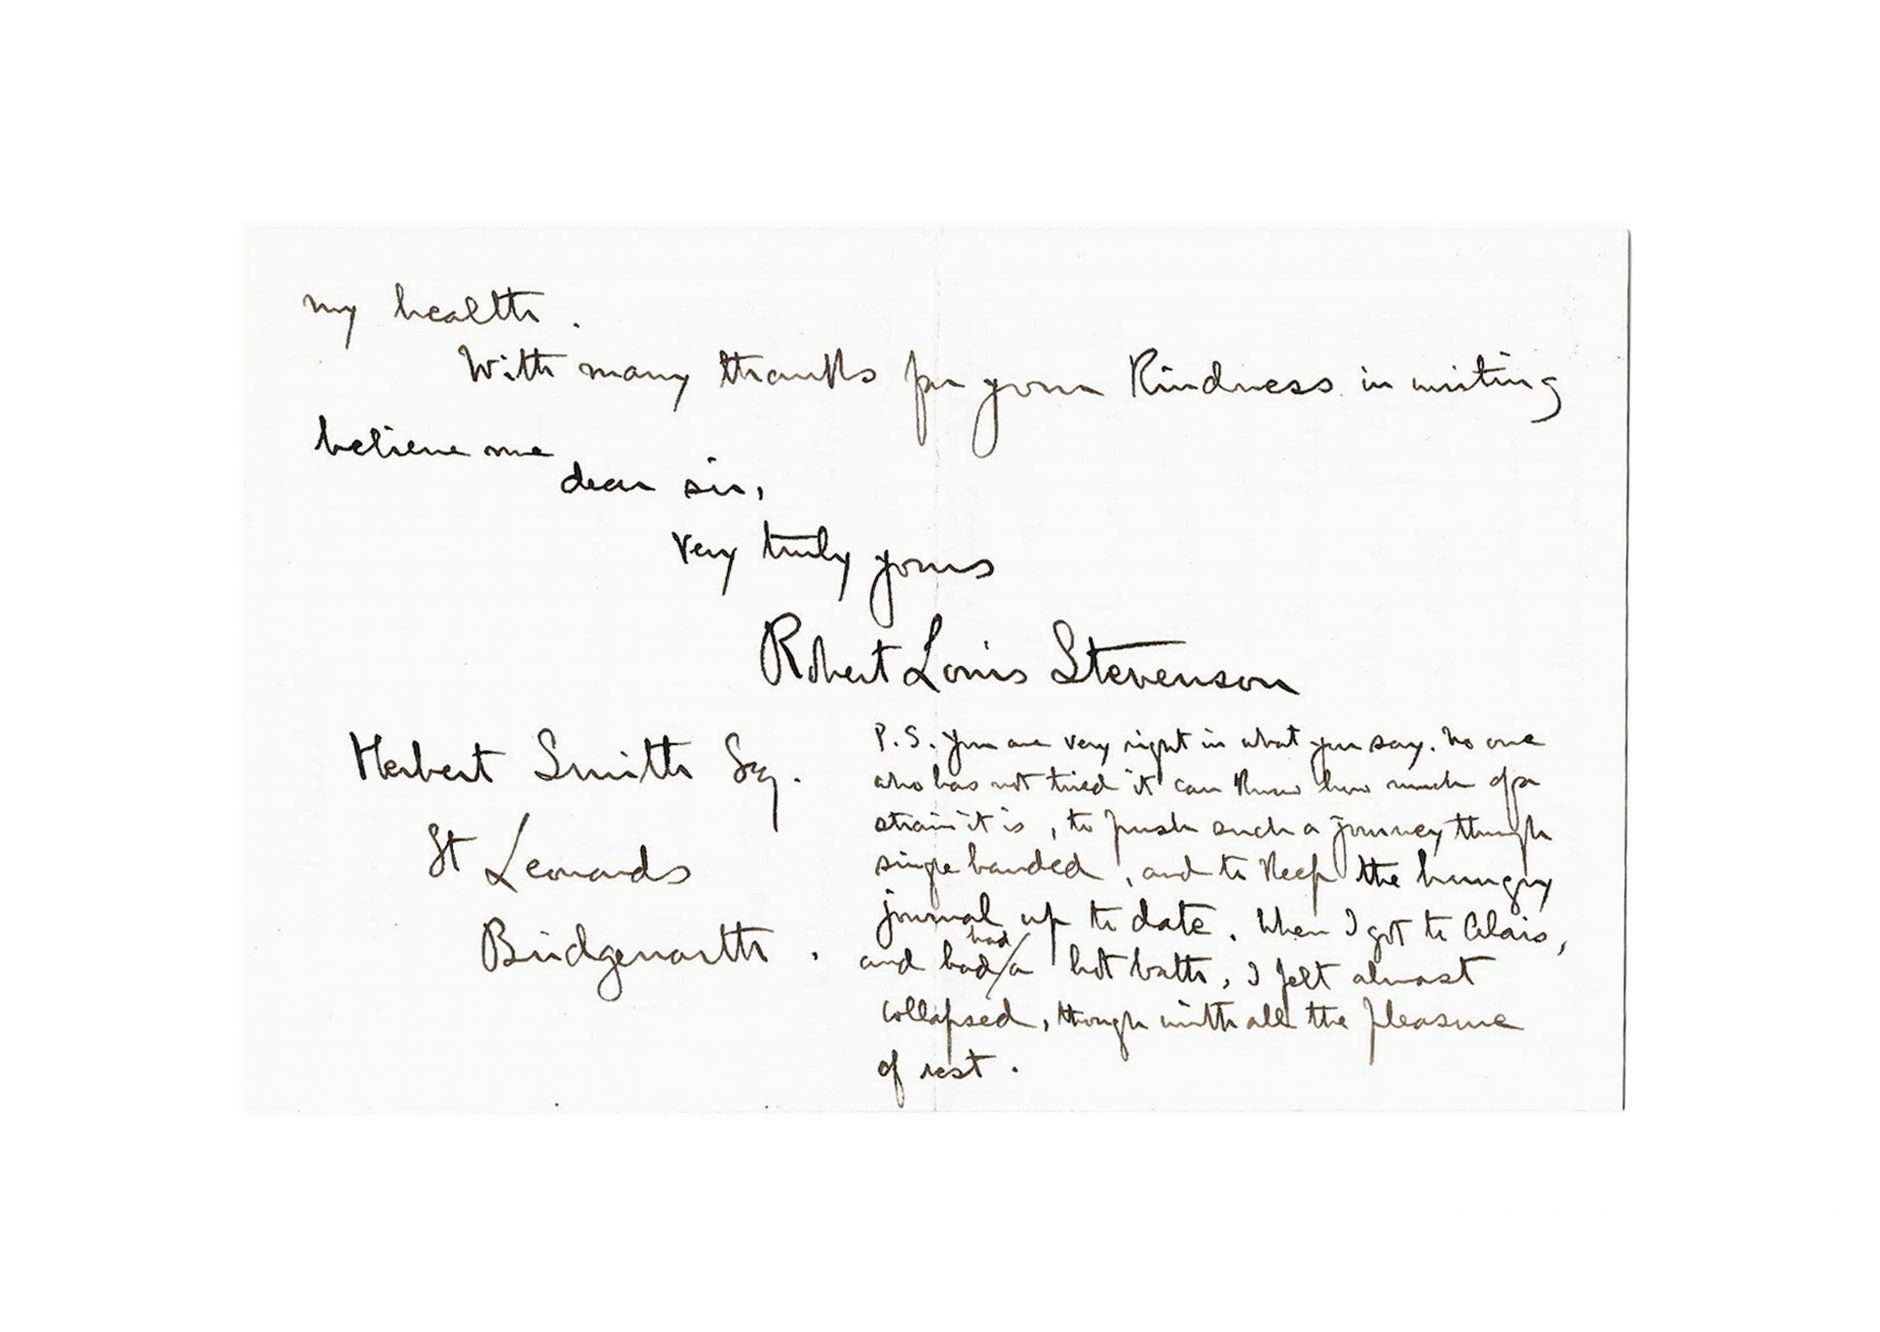 my health.
With many thanks for your kindness in writing
believe me
dear sir,
very truly yours
Robert Louis Stevenson
Herbert Smith Esq.
St Leonards
Bridgenorth.
P.S. You are very right in what you say. No one
who has not tried it can know how much of a
strain it is, to push such a journey through
single handed, and to keep the hungry
journal up to date. When I got to Alais,
had
and had/a hot bath, I felt almost
collapsed, though with all the pleasure
of rest.